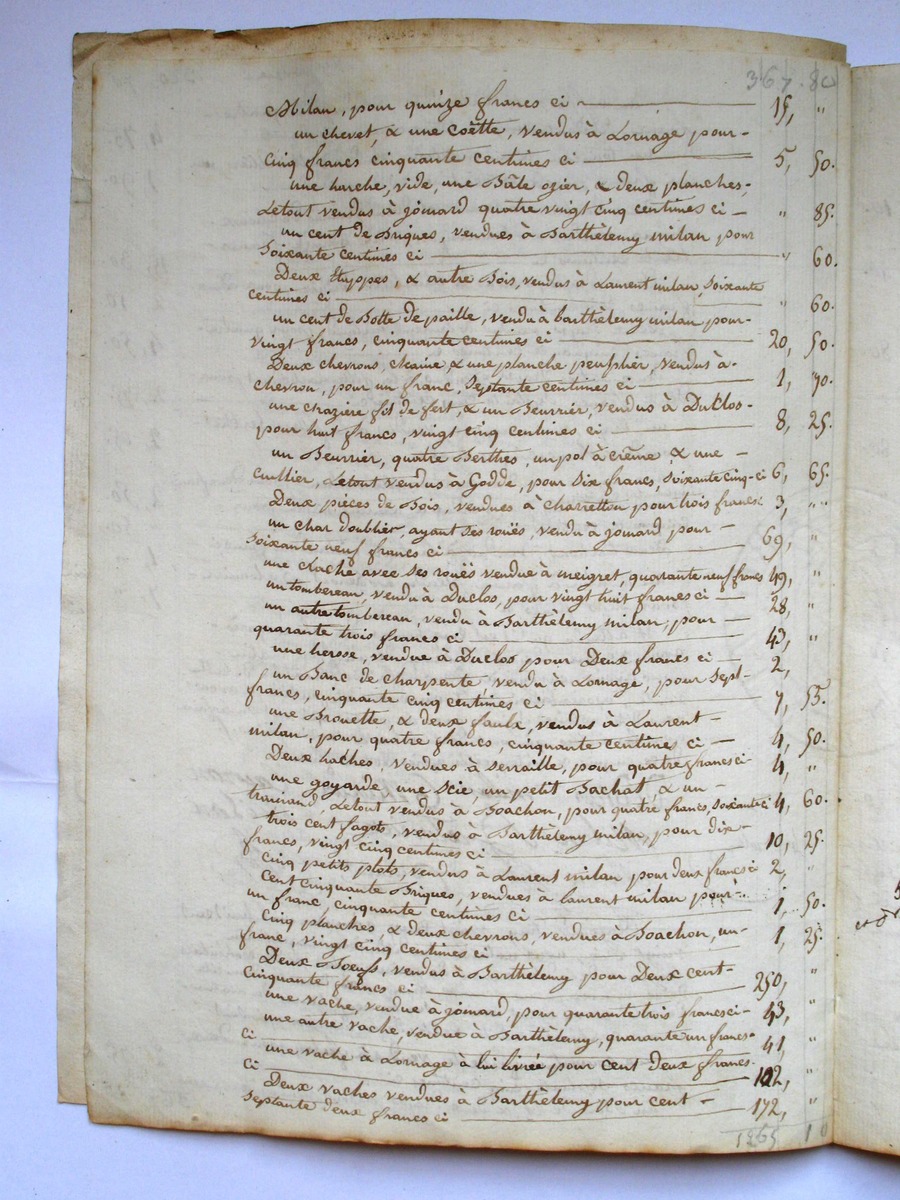 367. 80
Milan, pour quinze francs ci 15, "
un chevet, & une coëtte, vendus à Lornage pour-
cinq francs cinquante centimes ci 5, 50.
une harche, vide, une Bâte ozier, & deux planches,
Letout vendus à jomard quatre vingt cinq centimes ci " 85.
un cent de Briques, vendues à Barthèlemy milan pour
soixante centimes ci " 60.
Deux huppes, & autre Bois, vendus à Laurent milan, soixante
centimes ci " 60.
un cent de Botte de paille, vendu à barthèlemy milan pour-
vingt francs, cinquante centimes ci 20, 50.
Deux chevrons, chaine, & une planche peuphier, vendus à-
chevron, pour un franc, septante centimes ci 1, 70.
une crazière fil de fert, & un Beurrier, vendus à Duclos-
pour huit francs, vingt cinq centimes ci 8, 25.
un Beurrier, quatre Berthes, un pot à crême, & une-
cuillier, Letout vendus à Godde, pour six francs, soixante cinq-ci 6, 65.
Deux pièces de Bois, vendues à charretton pour trois francs: 3, "
un char doublier, ayant ses rouës, vendu à jomard pour-
soixante neuf francs ci 69, "
une clache avec ses rouës vendue à meigret, quarante neuf francs 49, "
un tombereau, vendu à Duclos, pour vingt huit francs ci 28, "
un autre tombereau, vendu à Barthèlemy milan, pour-
quarante trois francs ci 43, "
une herse, vendue à Duclos pour Deux francs ci 2,
un Banc de charpente, vendu à Lornage, pour sept-
francs, cinquante cinq centimes ci 7, 55.
une Brouette, & deux faulx, vendus à Laurent-
milan, pour quatre francs, cinquante centimes ci 4, 50.
Deux haches, vendues à serraille, pour quatre francs ci 4, "
une goyarde, une scie, un petit Bachat, & un-
trainand, Letout vendus à Boachon, pour quatre francs, soixante ci 4, 60.
trois cent fagots, vendus à Barthèlemy milan, pour dix-
francs, vingt cinq centimes ci 10, 25.
cinq petits plots, vendus à Laurent milan pour deux francs ci 2, "
cent cinquante Briques, vendues à laurent milan pour-
un franc cinquante centimes ci 1, 50.
cinq planches, & deux chevrons, vendues à Boachon, un-
franc, vingt cinq centimes ci 1, 25.
Deux Boeufs, vendus à Barthèlemy pour Deux cent-
cinquante francs ci 250, "
une vache, vendue à jomard, pour quarante trois francs ci- 43, "
une autre vache, vendue à Barthèlemy, quarante un francs-
ci 41, "
une vache à Lornage à lui livrée pour cent deux francs-
ci 102, "
Deux vaches vendues à Barthèlemy pour cent-
septante deux francs ci 172, "
1265 10